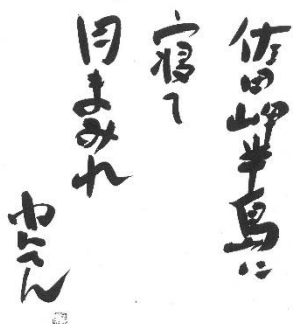 佐田岬半島に
寝て
月まみれ
ねんてん